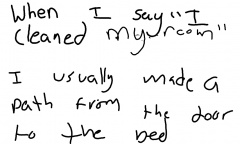 When I say "I
cleaned my room"
I usually made a
path from the door
to the bed